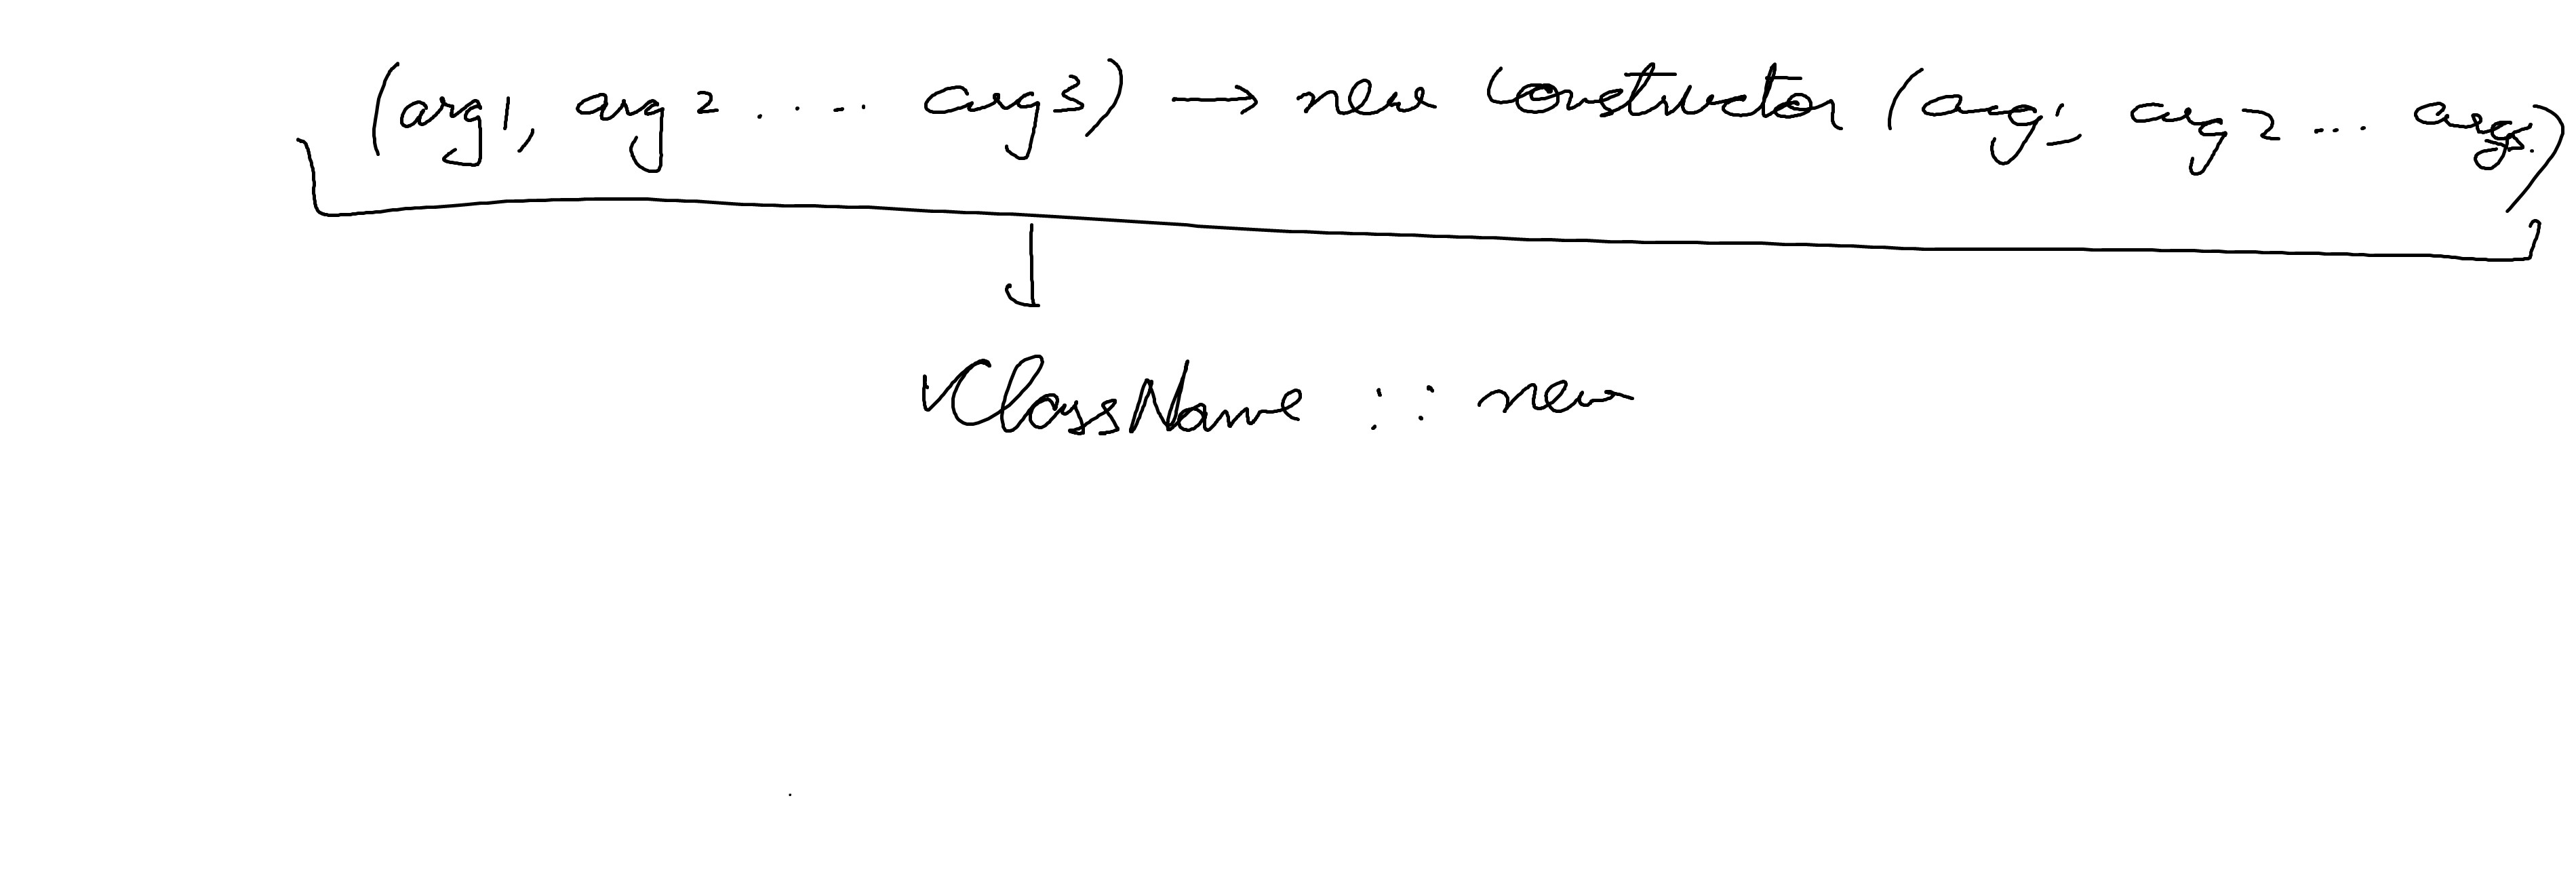 (arg1, arg2 ..... arg3) → new constructor (arg1, arg2 ... args)
ClassName :: new